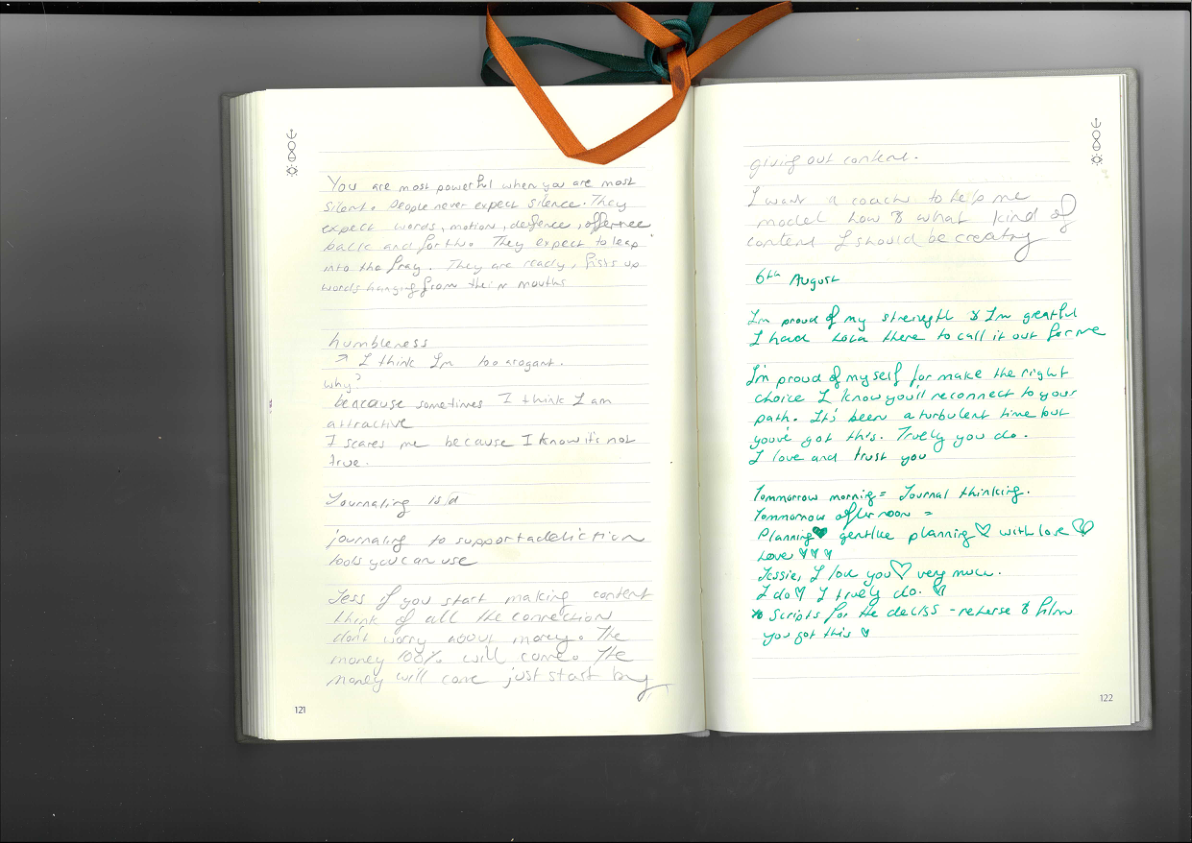 You are most powerful when you are most
silent. People never expect silence. They
expect words, motion, defence, offence
back and forth. They expect to leap
into the fray. They are ready, fists up
words hanging from their mouths
humbleness
↗ I think Im too arogant.
why?
because sometimes I think I am
attractive
I scares me because I know it's not
true.
Journaling is a
journaling to support addiction
tools you can use
Jess if you start making content
think of all the connection
don't worry about money. The
money 100% will come. The
money will come just start by
121
giving out content.
I want a coach to help me
model how & what kind of
content I should be creating
6th August
I'm proud of my strength & I'm greatful
I had there to call it out for me
I'm proud of myself for make the right
choice I know you'll reconnect to your
path. It's been a turbulent time but
you've got this. Truely you do.
I love and trust you
Tommorrow mornig = Journal thinking.
Tommorrow afternoon =
Planning♥ gentlue planning♡ with love♡
Love ♡♡♡
Jessie, I love you♡ very much.
I do♡ I truely do. ♡
Scripts for the - reherse & film
you got this ♡
122